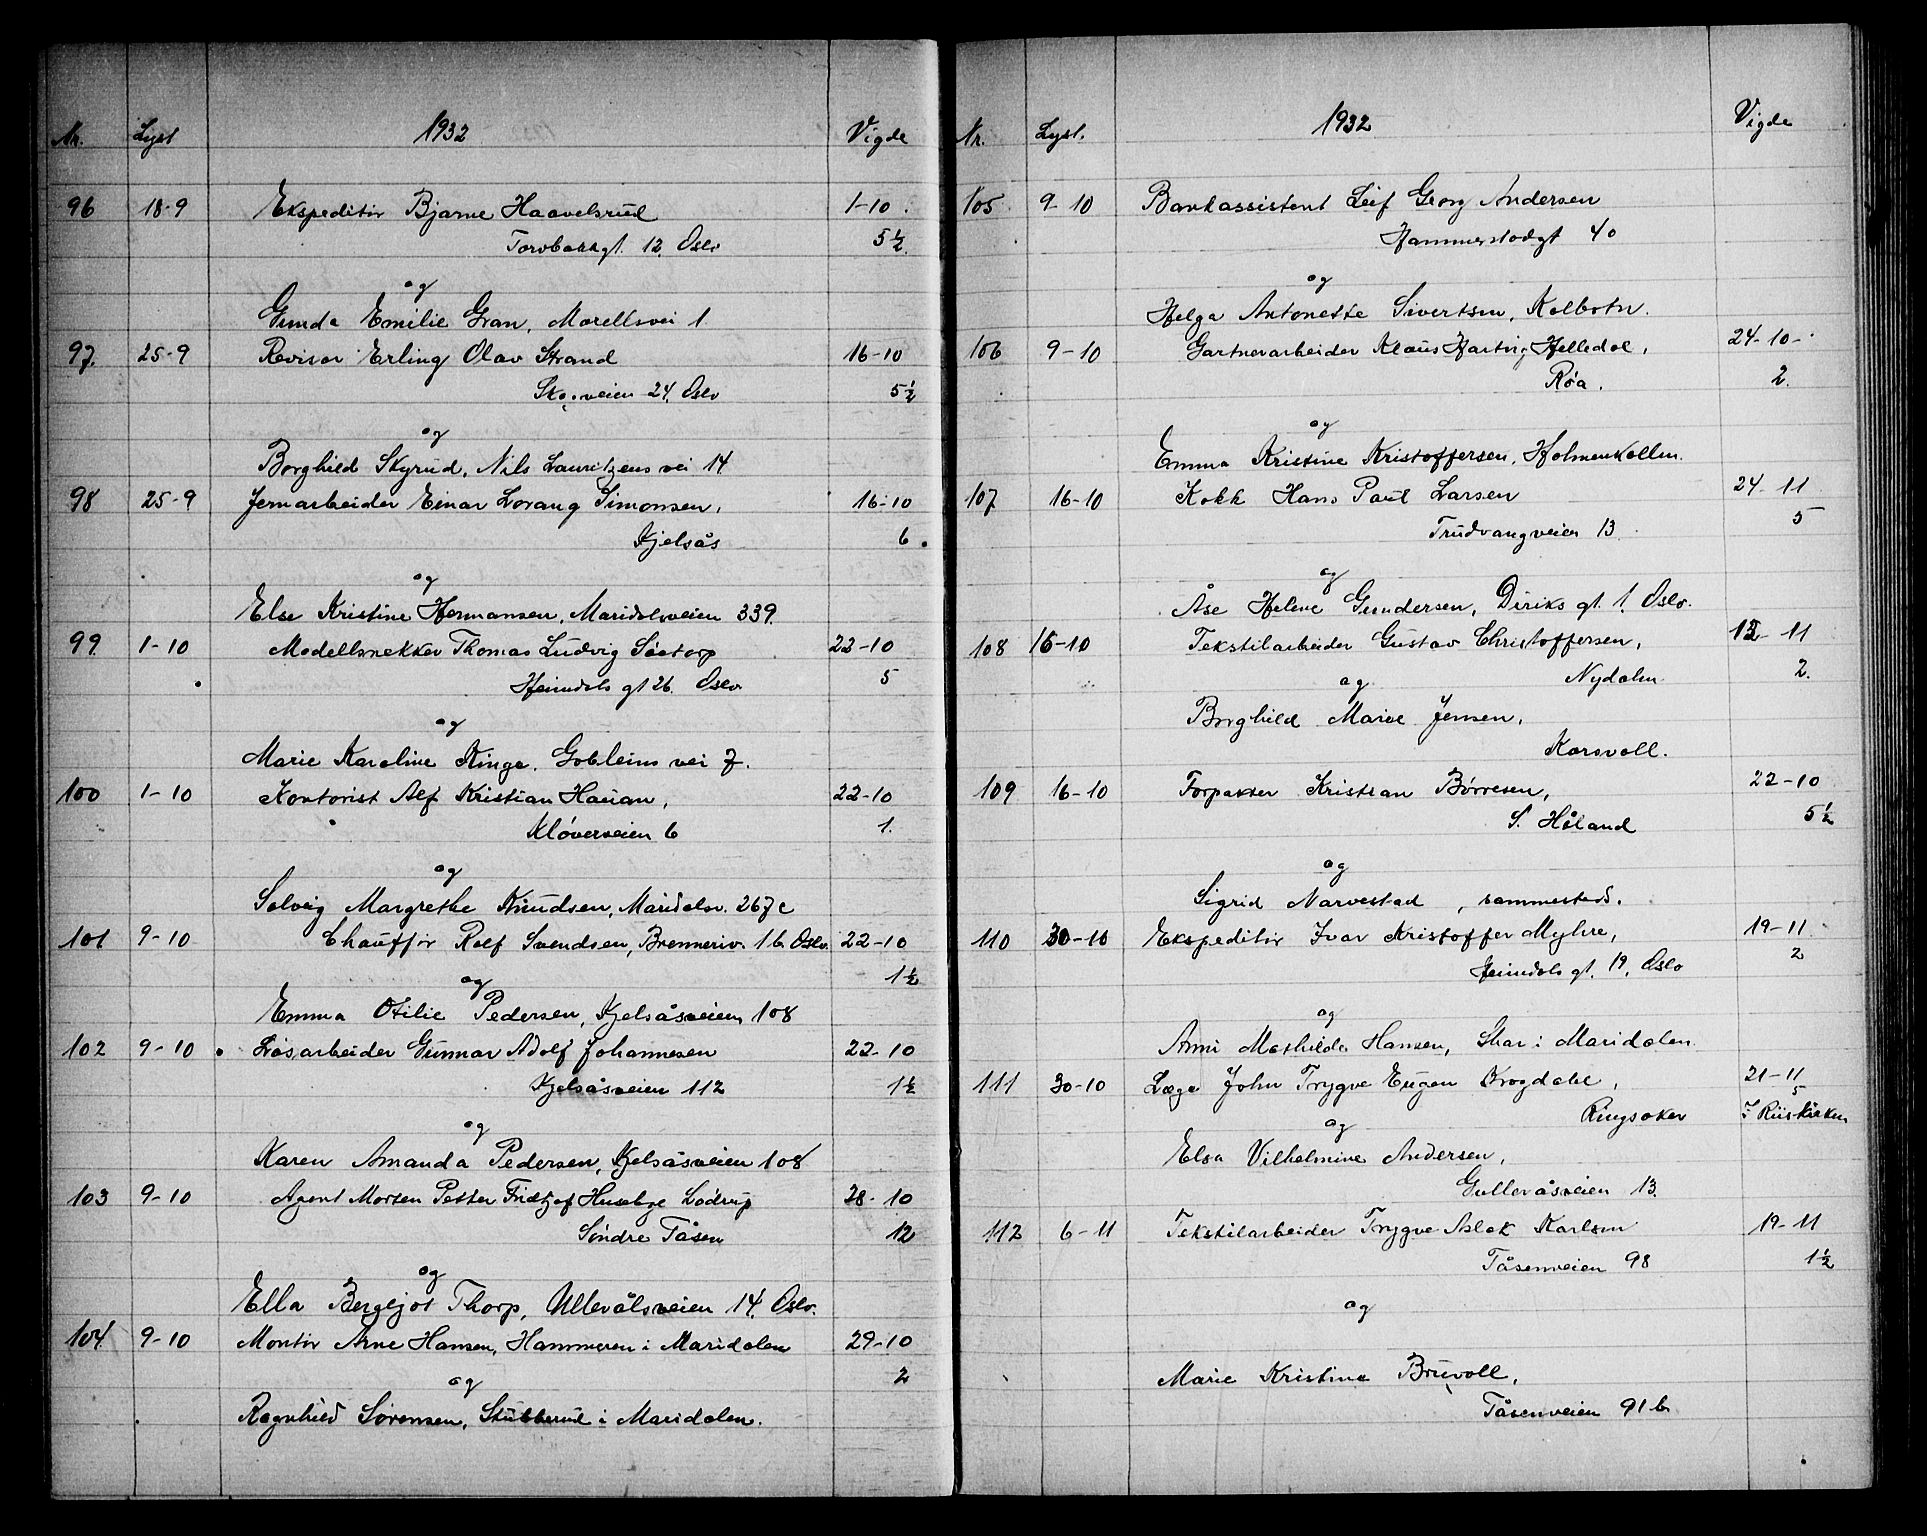 Nr. Lyst 1932 Vigde
96 18-9 Ekspeditør Bjarne Haavelsrud 1-10
Torvbakkgt. 12, Oslo 5½
og
Gunda Emilie Gran, Morellsvei 1
97. 25-9 Revisor Erling Olav Strand 16-10
Skovveien 24, Oslo 5½
og
Borghild Skyrud, Nils Lauritzens vei 14
98 25-9 Jernarbeider Einar Lorang Simonsen, 16-10
Kjelsås 6
og
Else Kristine Hermansen, Maridalsveien 339.
99 1-10 Modellsnekker Thomas Ludvig Sætorp 22-10
Heimdals gt 26. Oslo 5
og
Marie Karoline Ringe. vei 7.
100 1-10 Kontorist Alf Kristian Hauan, 22-10
Kløverveien 6 1.
og
Solveig Margrethe Knudsen, Maridalsv. 267c
101 9-10 Chauffør Rolf Svendsen, Brenneriv. 16 Oslo. 22-10
1½
og
Emma Otilie Pedersen, Kjelsåsveien 108
102 9-10 Løsarbeider Gunnar Adolf Johannesen 22-10
Kjelsåsveien 112 1½
og
Karen Amanda Pedersen, Kjelsåsveien 108
103 9-10 Agent Morten Petter Fridtjof Husebye Lødrup 28-10
Søndre Tåsen 12
og
Ella Bergljot Thorp, Ullevålsveien 14, Oslo.
104 9-10 Montør Arne Hansen, Hammeren i Maridalen 29-10
2
og
Ragnhild Sørensen, Stubberud i Maridalen.
Nr. Lyst. 1932 Vigde
105 9-10 Bankassistent Leif Georg Andersen
Hammerstadgt 40
og
Helga Antonette Sivertsen, Kolbotn.
106 9-10 Gartnerarbeider Klaus Hartvig Helledal, 24-10-
Røa. 2.
og
Emma Kristine Kristoffersen, Holmenkollen.
107 16-10 Kokk Hans Paul Larsen 24-11
Trudvangveien 13 5
og
Åse Helene Gundersen, Diriks gt. 1, Oslo.
108 16-10 Tekstilarbeider Gustav Christoffersen, 12-11
Nydalen 2.
og
Borghild Marie Jensen,
Korsvoll.
109 16-10 Forpakter Kristian Børresen, 22-10
S. Håland 5½
og
Sigrid Narvestad, sammesteds.
110 30-10 Ekspeditør Ivar Kristoffer Myhre, 19-11
Heimdals gt. 19, Oslo 2
og
Anni Mathilde Hansen, Skar i Maridalen
111 30-10 Læge John Trygve Eugen Krogdahl, 21-11
5
Ringsaker I Riiskirken
og
Elsa Vilhelmine Andersen,
Gullevåsveien 13.
112 6-11 Tekstilarbeider Trygve Aslak Karlsen 19-11
Tåsenveien 98 1½
og
Marie Kristine Bruvoll,
Tåsenveien 91b